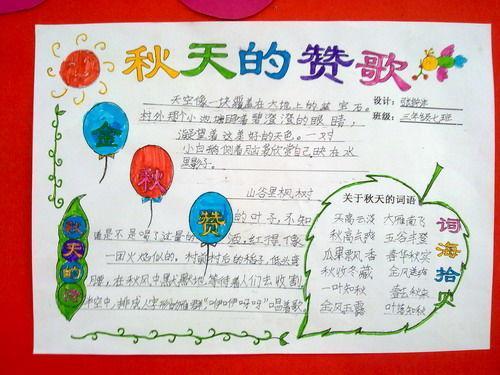 秋天的赞歌
设计：
班级：三年级七班
天空像一块覆盖在大地上的蓝宝石。
村外那个小池塘睁着碧澄澄的眼睛，
凝望着这美好的天色。一对
小白鹅侧着欣赏自己映在水
里影子。
金
秋
赞
山谷里枫树
的叶子，不知
道是不是喝了过量的酒，红得像
一团火似的。村前村后的稻子，低头弯
腰，在秋风中默默地等待着人们去收割
半空中，排成人字形的雁群“咿咿呀呀”唱着歌。
秋天的
关于秋天的词语
天高云淡 大雁南飞
秋高气爽 五谷丰登
瓜果飘香 春华秋实
秋收冬藏 金风送爽
一叶知秋
金风玉露 叶落知秋
词海拾贝